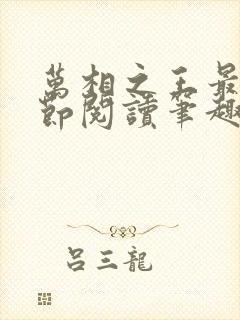 萬相之王最
節閱讀筆趣
呂三龍